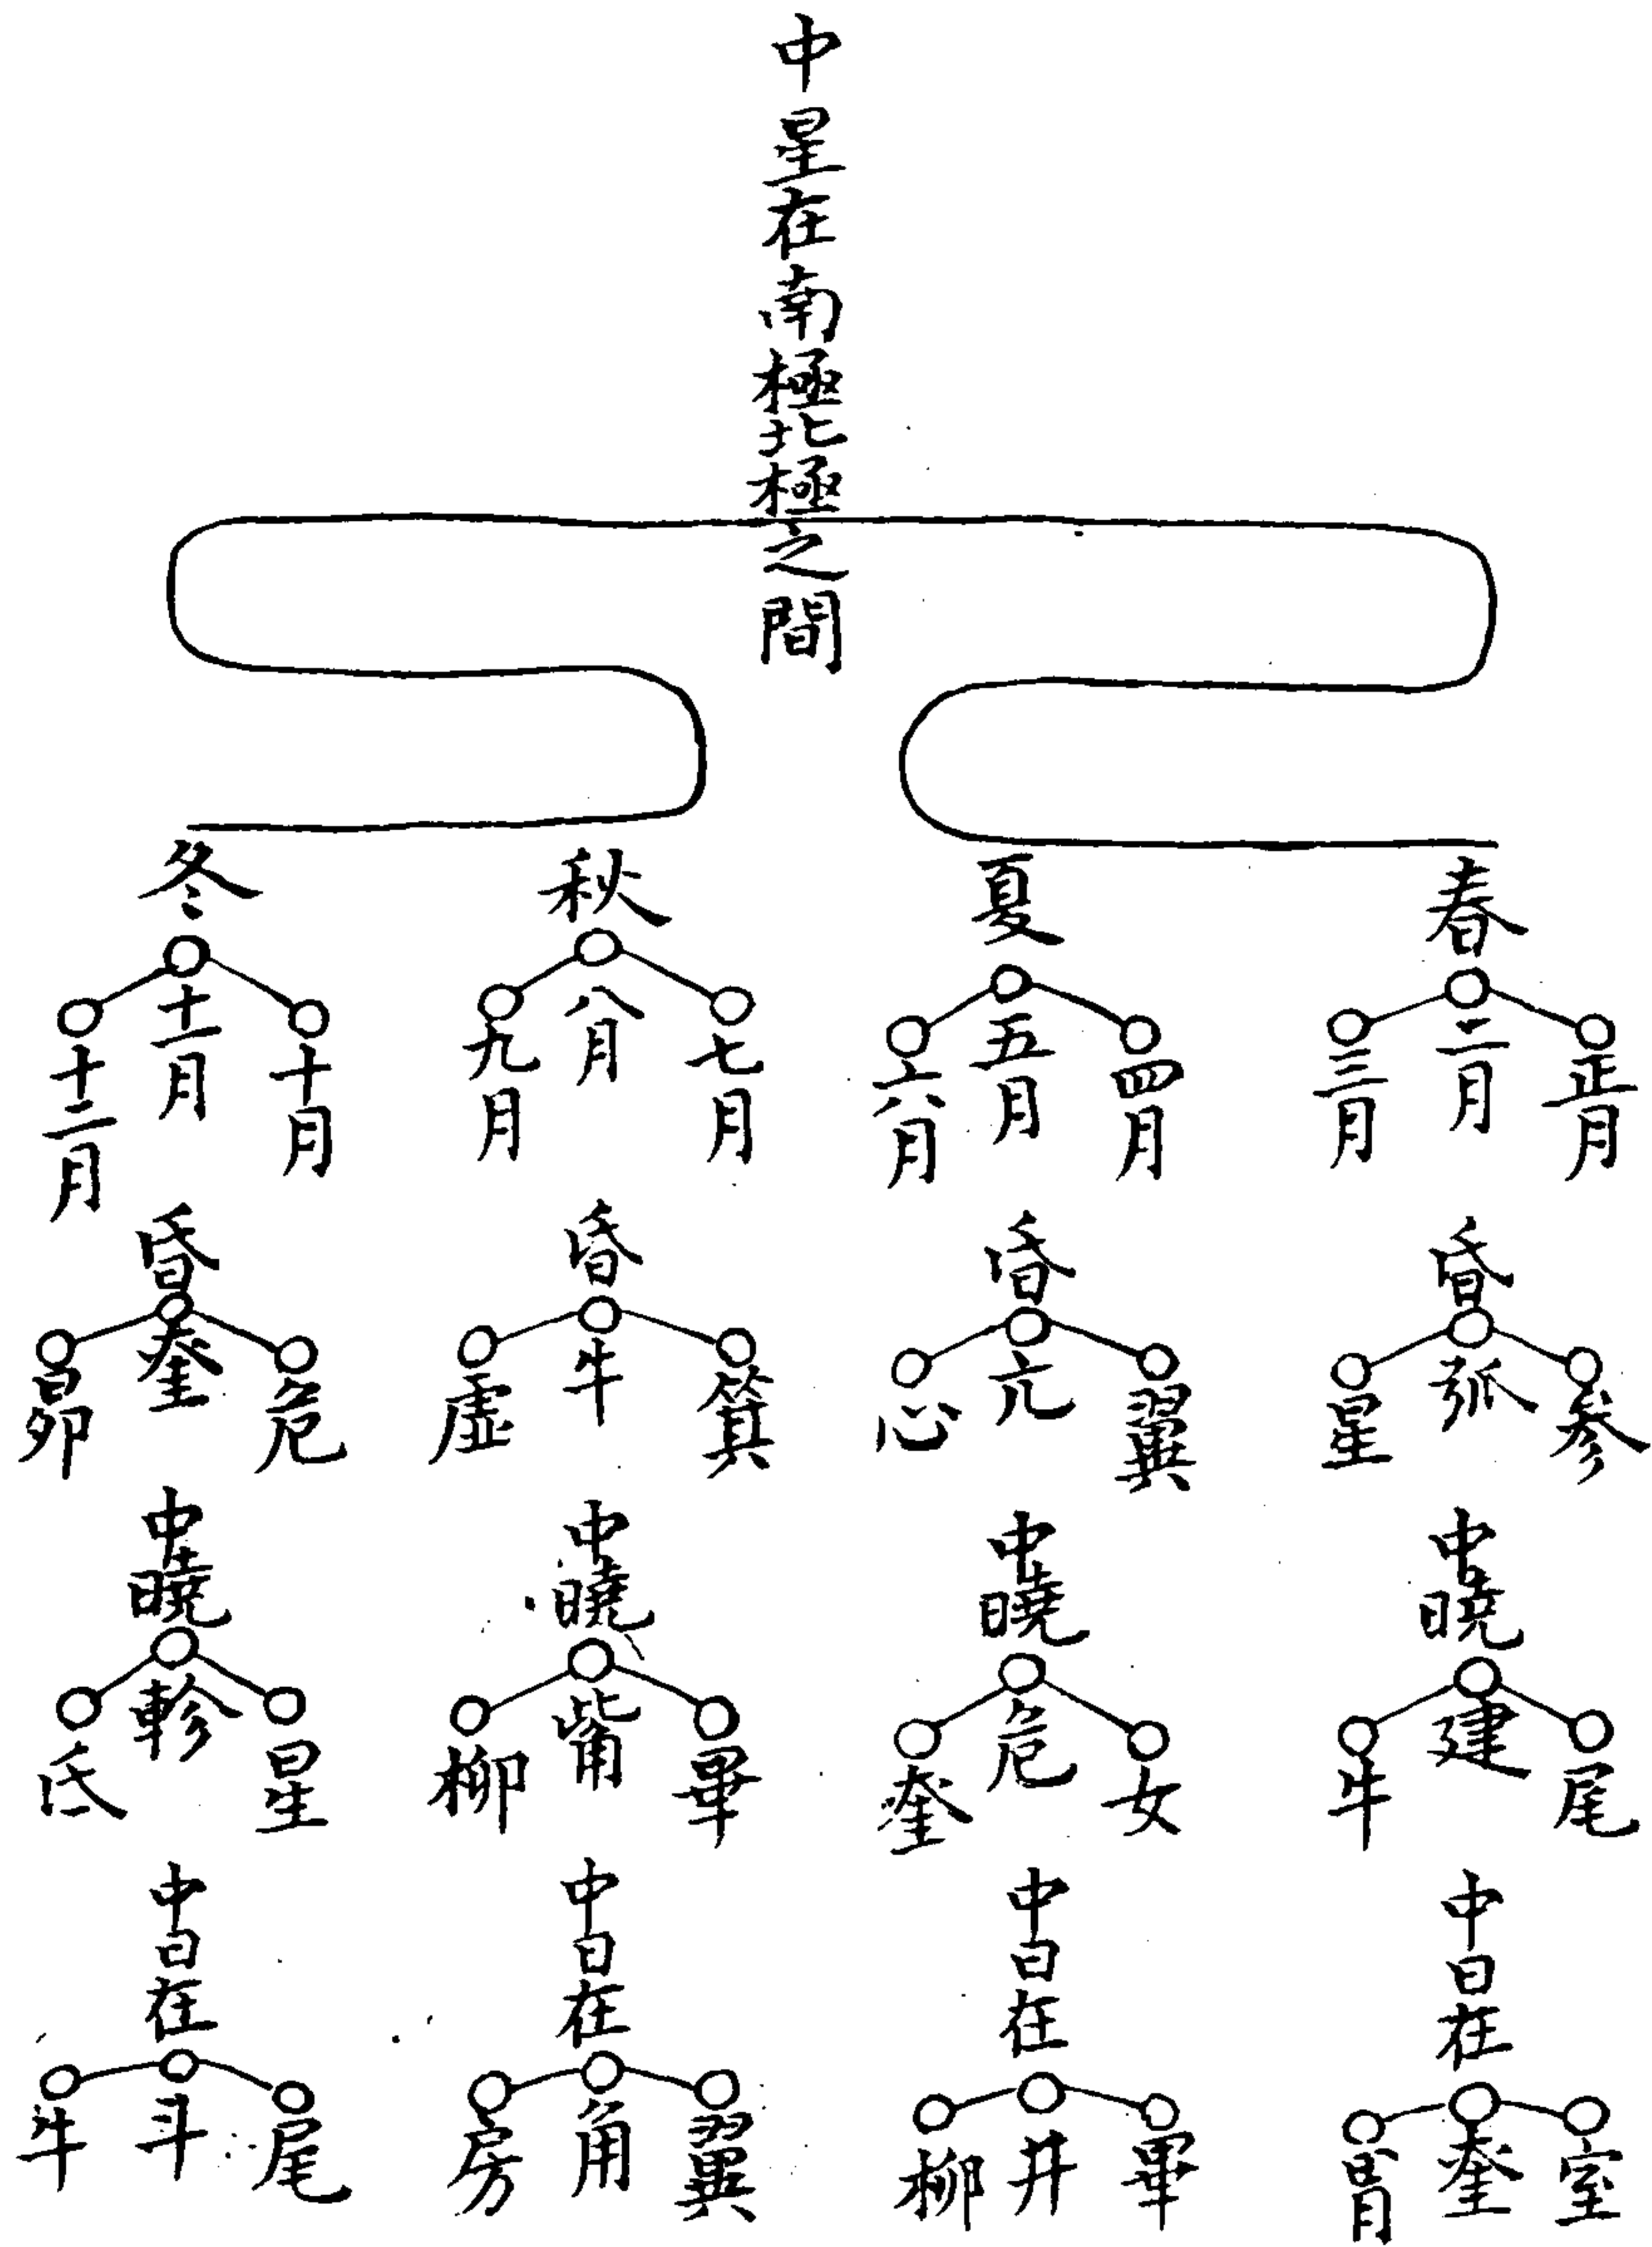 中星在南極北極之間
春
正月
二月
三月
昏
參
弧
星
中曉
尾
建
牛
中日在
室
奎
胃
夏
四月
五月
六月
昏
翼
亢
心
中曉
女
危
奎
中日在
畢
井
柳
秋
七月
八月
九月
昏
箕
牛
虛
中曉
畢
觜
柳
中日在
翼
角
房
冬
十月
十一月
十二月
昏
危
奎
昴
中曉
星
軫
氐
中日在
尾
斗
牛